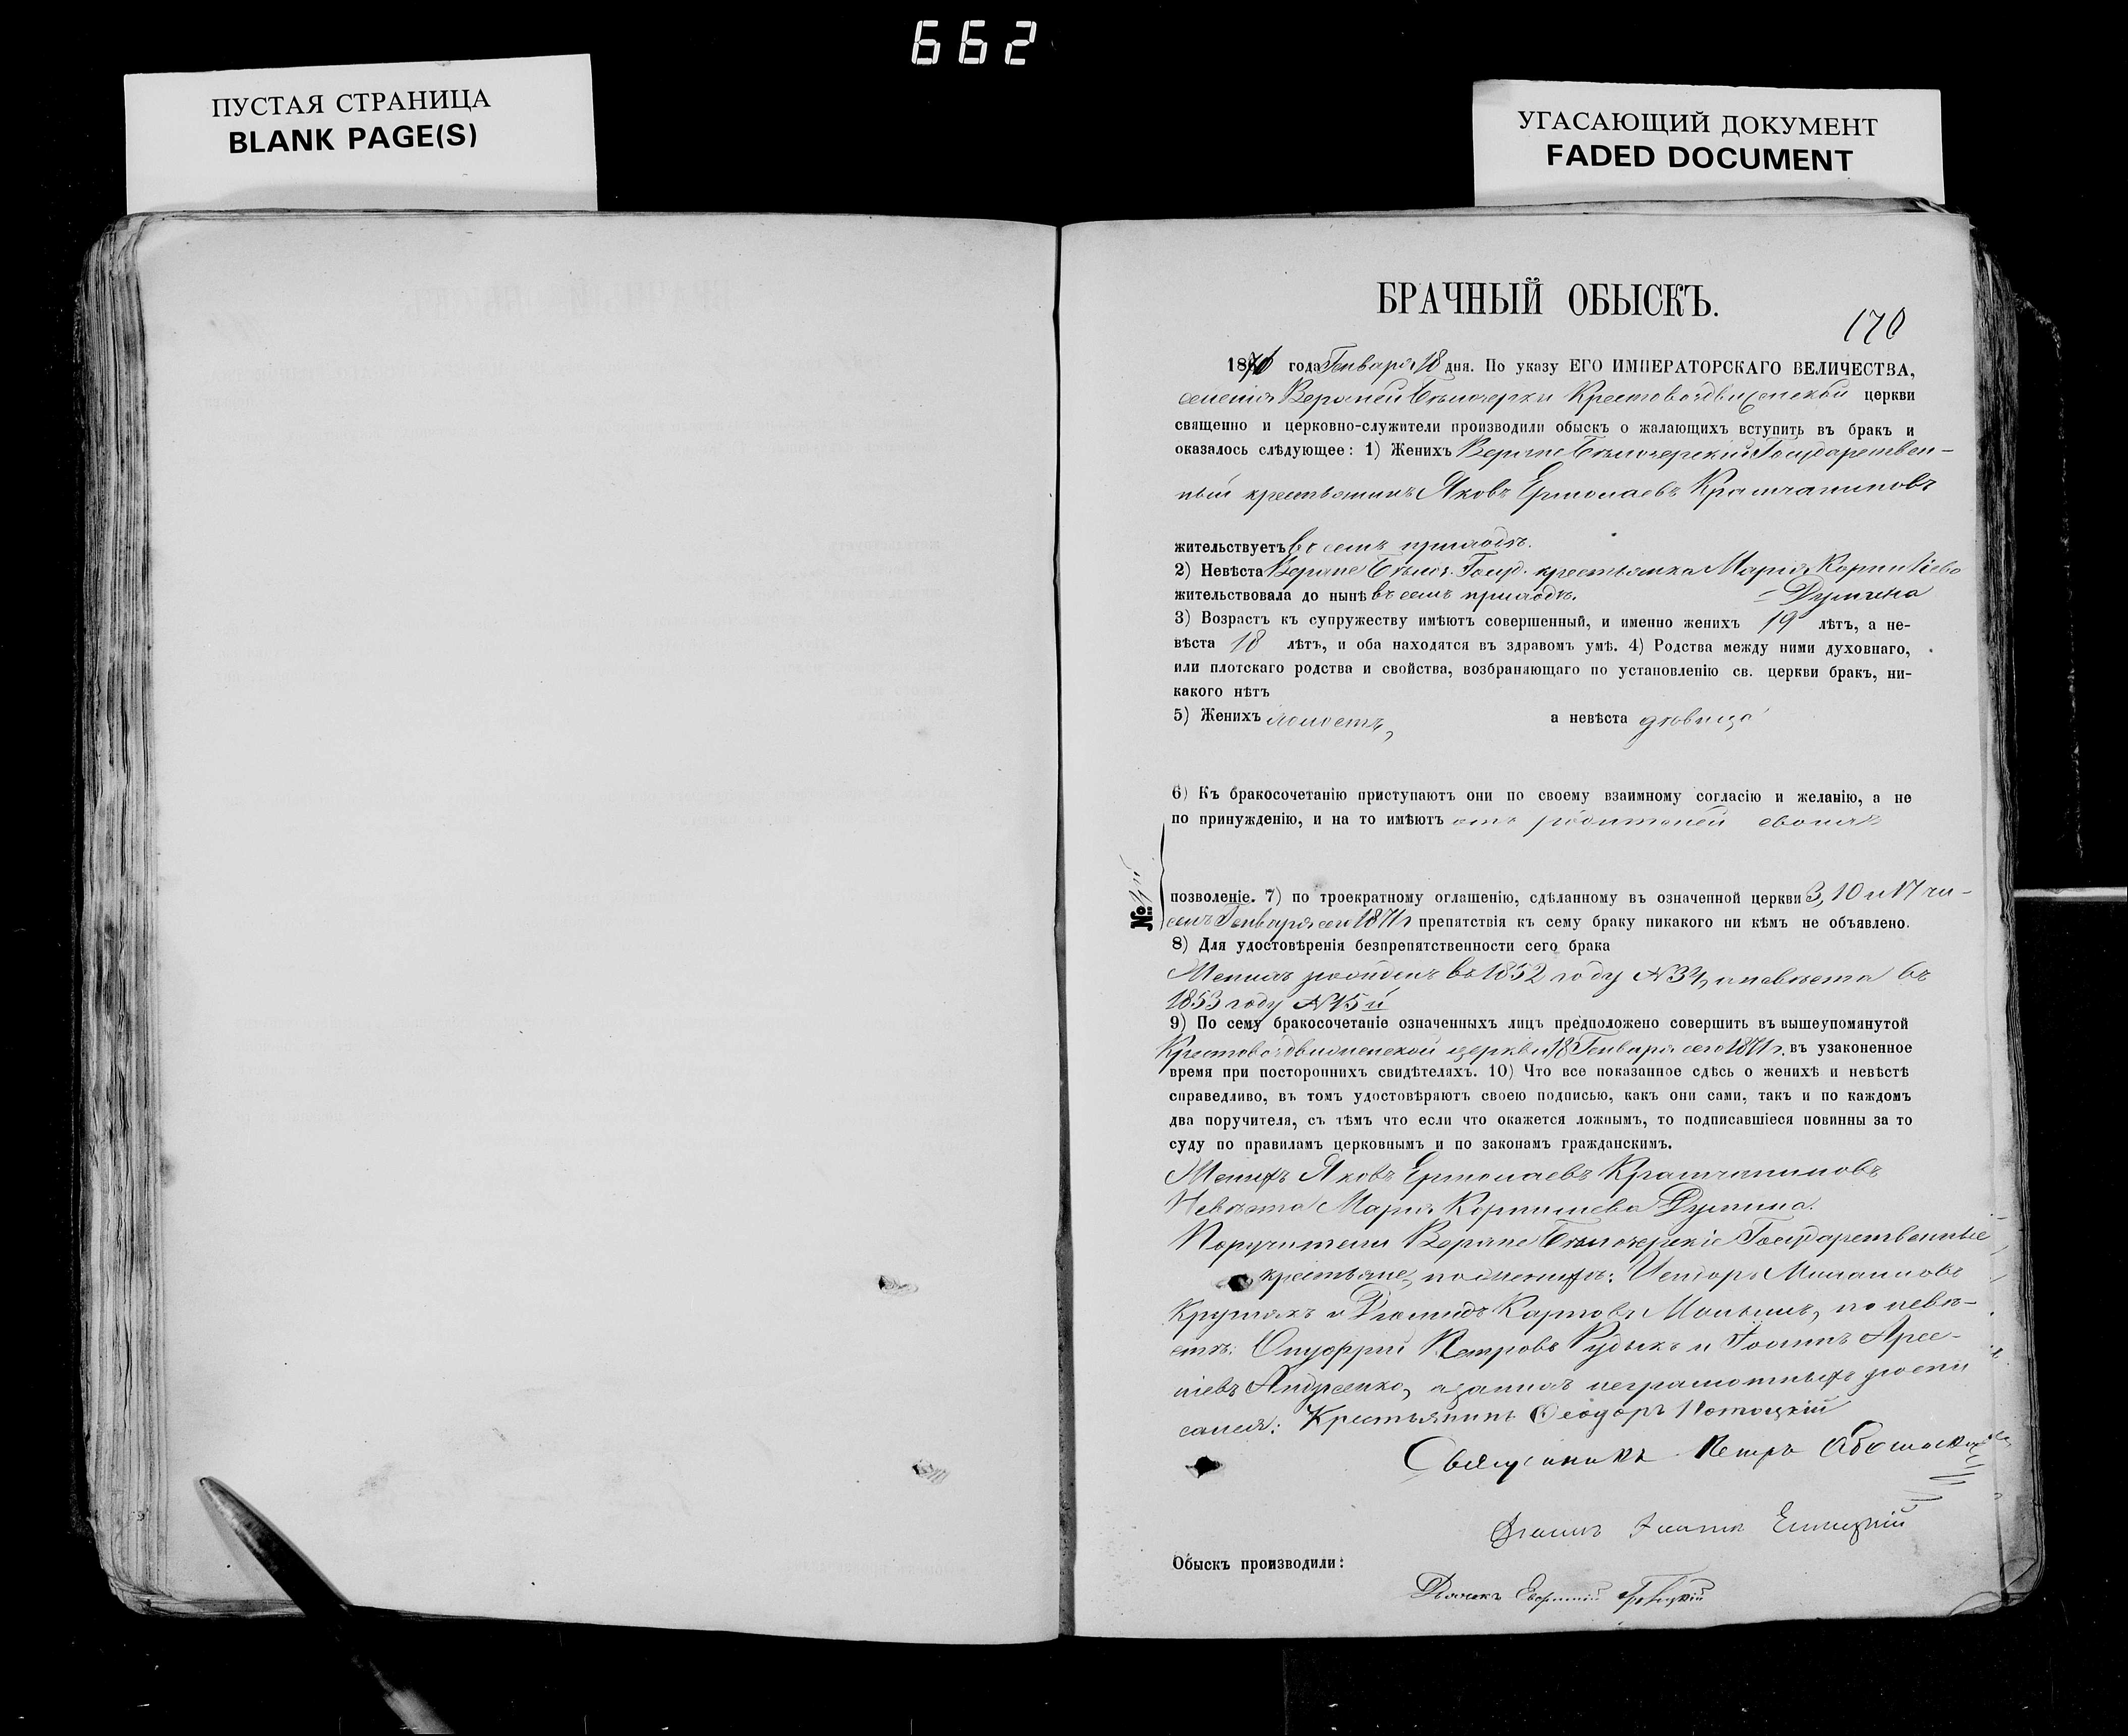 662
ПУСТАЯ СТРАНИЦА
BLANK PAGE(S)
УГАСАЮЩИЙ ДОКУМЕНТ
FADED DOCUMENT
БРАЧНЫЙ ОБЫСКЪ.
170
1871 года Генваря 18 дня. По указу ЕГО ИМПЕРАТОРСКАГО ВЕЛИЧЕСТВА,
селенія Верхней Бѣлозерки Крестовоздвиженской церкви
священно и церковно-служители производили обыскъ о жалающихъ вступить въ бракъ и
оказалось слѣдующее: 1) Женихъ Верхне Бѣлозерскій Государствен-
ный крестьянинъ Яковъ Ермолаевъ
жительствуетъ въ семъ приходѣ.
2) Невѣста Верхне Бѣлоз. Госуд. крестьянка Марія Корнилiева
жительствовала до нынѣ въ семъ приходѣ.
3) Возрастъ къ супружеству имѣютъ совершенный, и именно женихъ 19 лѣтъ, а не-
вѣста 18 лѣтъ, и оба находятся въ здравомъ умѣ. 4) Родства между ними духовнаго,
или плотскаго родства и свойства, возбраняющаго по установленію св. церкви бракъ, ни-
какого нѣтъ
5) Женихъ холостъ, а невѣста дѣвица
6) Къ бракосочетанію приступаютъ они по своему взаимному согласію и желанію, а не
по принужденію, и на то имѣютъ отъ родителей своихъ
№
позволеніе. 7) по троекратному оглашенію, сдѣланному въ означенной церкви 3, 10 и 17 чи-
селъ Генваря сего 1871 г препятствія къ сему браку никакого ни кѣмъ не объявлено.
8) Для удостовѣренія безпрепятственности сего брака
Женихъ рожденъ въ 1852 году № 34, а невѣста въ
1853 году № 15й
9) По сему бракосочетаніе означенныхъ лицъ предположено совершить въ вышеупомянутой
Крестовоздвиженской церкви 18 Генваря сего 1871 г. въ узаконенное
время при постороннихъ свидѣтеляхъ. 10) Что все показанное сдѣсь о женихѣ и невѣстѣ
справедливо, въ томъ удостовѣряютъ своею подписью, какъ они сами, такъ и по каждомъ
два поручителя, съ тѣмъ что если что окажется ложнымъ, то подписавшіеся повинны за то
суду по правиламъ церковнымъ и по законамъ гражданскимъ.
Женихъ Яковъ Ермолаевъ
Невѣста Марія Корнилiева
Поручители Верхне Бѣлозерскіе Государственные
крестьяне, по женихѣ:
и Діомидъ Карповъ, по невѣ-
стѣ: Онуфрий Петровъ Рудыкъ и Іоаннъ Арсе-
ніевъ Андреенко, а за нихъ неграмотныхъ роспи
сался: Крестьянинъ Ѳеодоръ Потоцкій
Священникъ Петръ
Іоаннъ
Обыскъ производили:
Дьячекъ